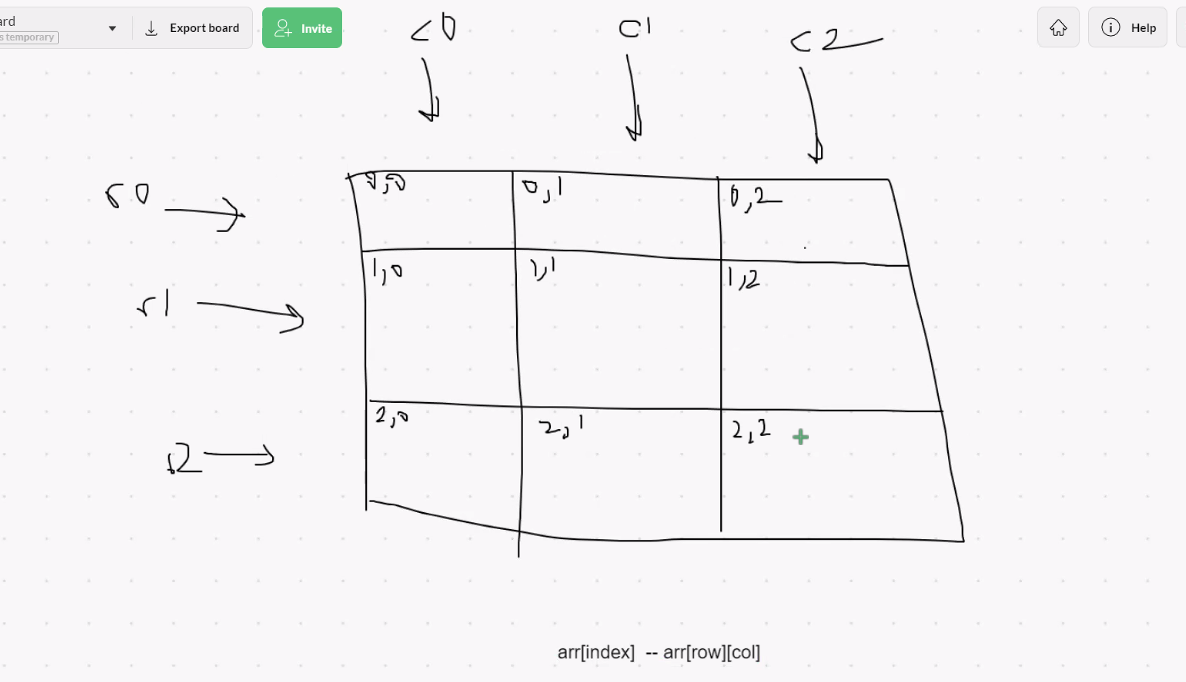 ard
s temporary
Export board
Invite
Help
c0 c1 c2
r0
0,0 0,1 0,2
r1
1,0 1,1 1,2
r2
2,0 2,1 2,2
arr[index] -- arr[row][col]